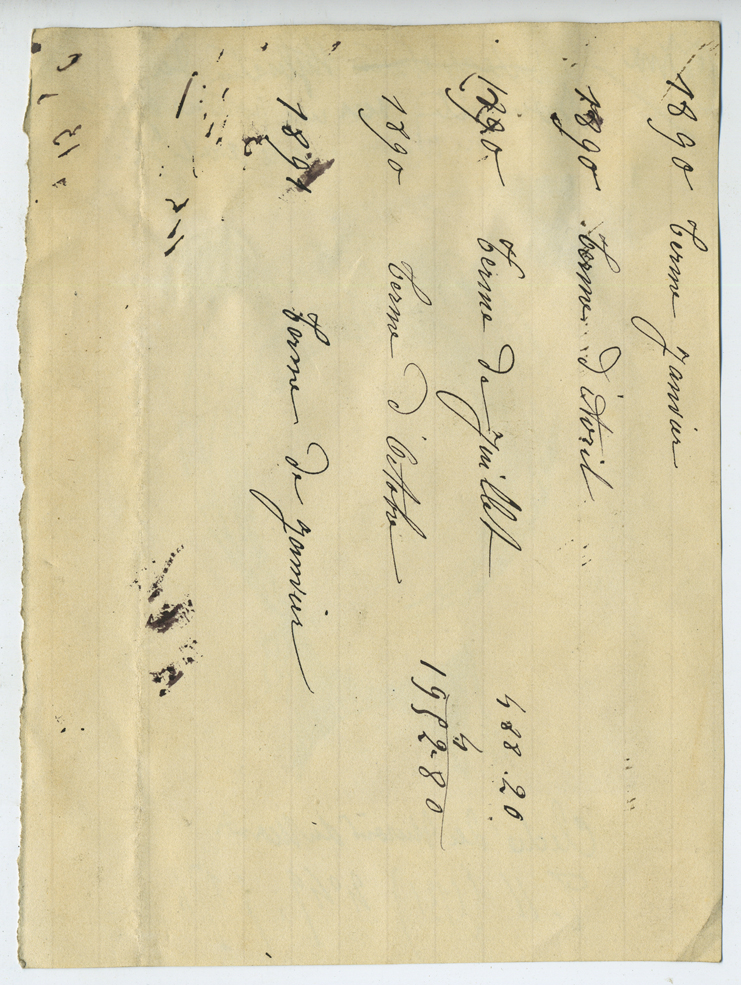 1890 terme janvier
1890 terme d'Avril
1890 terme de juillet
488.20
4
1890 terme d'Octobre
1952.80
1891 terme de janvier